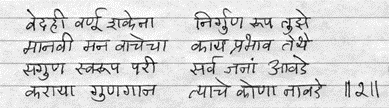 वेदही वर्णू शकेना निर्गुण रूप तुझे
मानवी मन वाचेचा काय प्रभाव तेथे
सगुण स्वरूप परी सर्व जनां आवडे
कराया गुणगान त्याचे कोणा नावडे ॥२॥